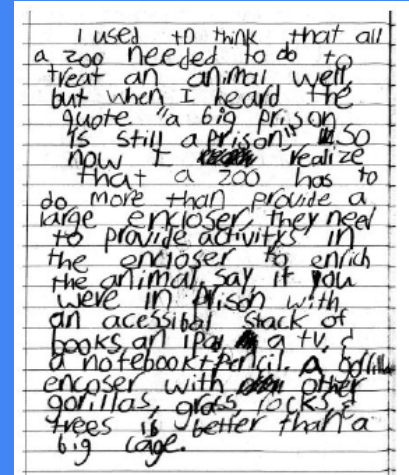 I used to think that all
a zoo needed to do to
treat an animal well,
but when I heard the
quote "a big prison
is still a prison," so
now I realize
that a zoo has to
do more than provide a
large encloser, they need
to provide activitys in
the encloser to enrich
the animal, say, if you
were in prison with
an acessibal stack of
books, an ipad, a tv, &
a notebook + pencil. A gorilla
encoser with other
gorillas, grass, rocks &
trees is better than a
big cage.